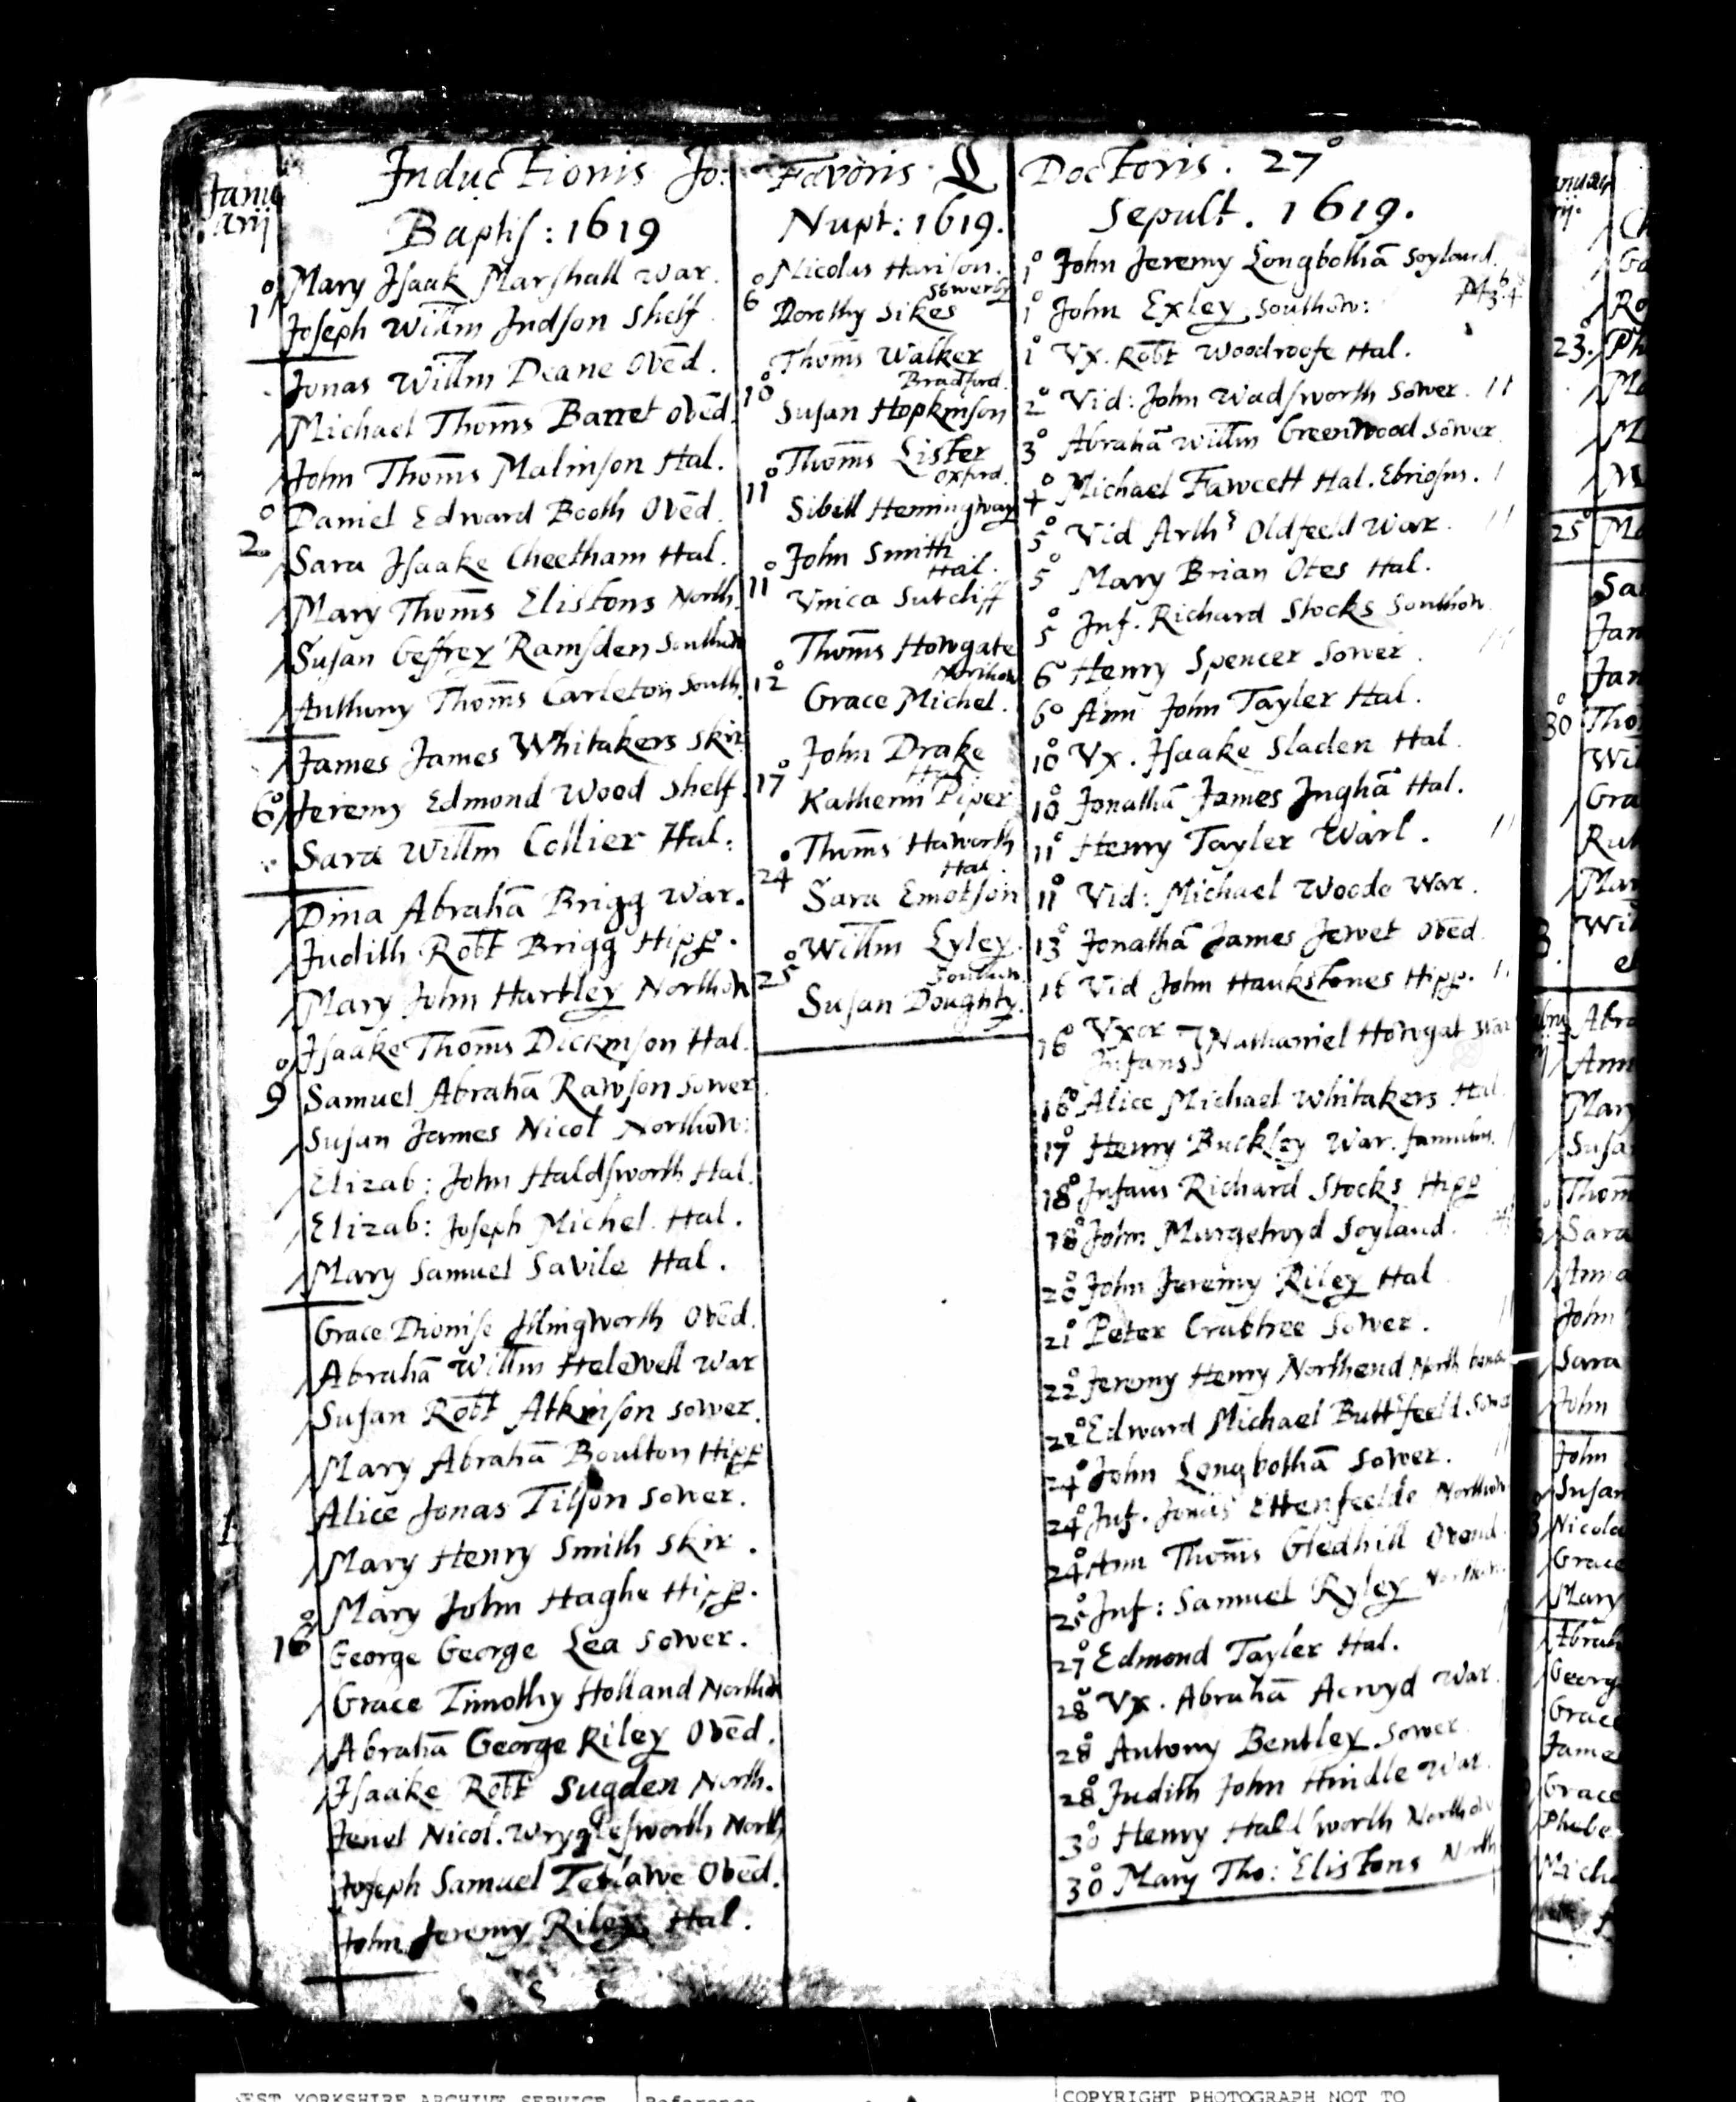 Inductionis Jo: Favoris Doctoris. 27°
Janu
arij
Baptis: 1619
1° Mary Isaak Marshall War.
Joseph Willm Judson Shelf
Jonas Willm Deane Ovēd.
Michael Thom̄s Barret Ovēd.
John Thom̄s Malinson Hal.
2° Daniel Edward Booth Ovēd.
Sara Isaake Cheetham Hal.
Mary Thom̄s Elistons North.
Susan Geffrey Ramsden Southow
Anthony Thom̄s Carleton South.
James James Whitakers Skir
6° Jeremy Edmond Wood Shelf.
Sara Willm Collier Hal:
Dina Abrahā Brigg War.
Judith Robt Brigg Hipp.
Mary John Hartley Northow
9° Isaake Thom̄s Dickinson Hal.
Samuel Abrahā Rawson Sower
Susan James Nicol Northow:
Elizab: John Haldsworth Hal.
Elizab: Joseph Michel Hal.
Mary Samuel Savile Hal.
Grace Dionise Illingworth Ovēd.
Abrahā Willm Helewell War
Susan Robt Atkinson Sower.
Mary Abrahā Boulton Hipp
Alice Jonas Tilson Sower.
Mary Henry Smith Skir.
Mary John Haghe Hipp.
16° George George Lea Sower.
Grace Timothy Holland Northow
Abrahā George Riley Ovēd.
Isaake Robt Sugden North.
Jenet Nicol. Wrygglesworth North
Joseph Samuel Tetlawe Ovēd.
John Jeremy Riley Hal.
Nupt: 1619.
6° Nicolas Harison.
Sowerby
Dorothy Sikes
10° Thom̄s Walker
Bradford.
Susan Hopkinson
11° Thom̄s Lister
Oxford.
Sibell Hemingway
11° John Smith
Hal.
Vnica Sutcliff
12° Thom̄s Howgate
Northow
Grace Michel.
17° John Drake
Hal
Katherin Piper
24° Thom̄s Haworth
Hal.
Sara Emotson
25° Willm Lyley.
Southow.
Susan Doughty.
Sepult. 1619.
1° John Jeremy Longbothā Soyland.
1° John Exley Southow:
1° Vx. Robt Woodroofe Hal.
2° Vid: John Wadsworth Sower.
3° Abrahā Willm Greenwood Sower
4° Michael Fawcett Hal. Ebriosus.
5° Vid Arth Oldfeeld War.
5° Mary Brian Otes Hal.
5° Inf. Richard Stocks Southow
6° Henry Spencer Sower.
6° Ann John Tayler Hal.
10° Vx. Isaake Sladen Hal.
10° Jonathā James Inghā Hal.
11° Henry Tayler Warl.
11° Vid: Michael Woode War.
13° Jonathā James Jewet Ovēd.
16 Vid John Haukstones Hipp.
16° Vxor
Infans } Nathaniel Howgat War
16° Alice Michael Whitakers Hal.
17° Henry Buckley War. famulus.
18° Infans Richard Stocks Hipp
18° John Murgetroyd Soyland.
20° John Jeremy Riley Hal
21° Peter Crabtree Sower.
22° Jeremy Henry Northend North
22° Edward Michael Butt'feeld. Sower
24° John Longbothā Sower.
24° Inf. Jonas Ettenfeelde Northow
24° Ann Thom̄s Gledhill Ovend.
25° Inf: Samuel Ryley Northow
27° Edmond Tayler Hal.
28° Vx. Abrahā Acroyd War.
28° Antony Bentley Sower
28° Judith John Hindle War.
30° Henry Haldsworth Northow
30° Mary Tho: Elistons North
23.
25°
30°
John
Sara
John
John
Susan
Grace
Mary
Grace
Grace
Phebe
WEST YORKSHIRE ARCHIVE SERVICE
Reference
COPYRIGHT PHOTOGRAPH NOT TO